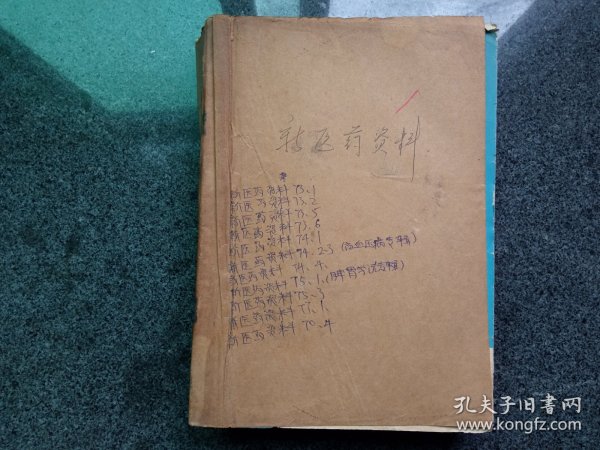 新医药资料
新医药资料 73.1
新医药资料 73.2
新医药资料 73.5
新医药资料 73.6
新医药资料 74.1
新医药资料 74.2-3 (高血压病专辑)
新医药资料 74.4.
新医药资料 75.1.(脾胃学说专辑)
新医药资料 75.3
新医药资料 77.1.
新医药资料 70.4
孔夫子旧书网
www.kongfz.com